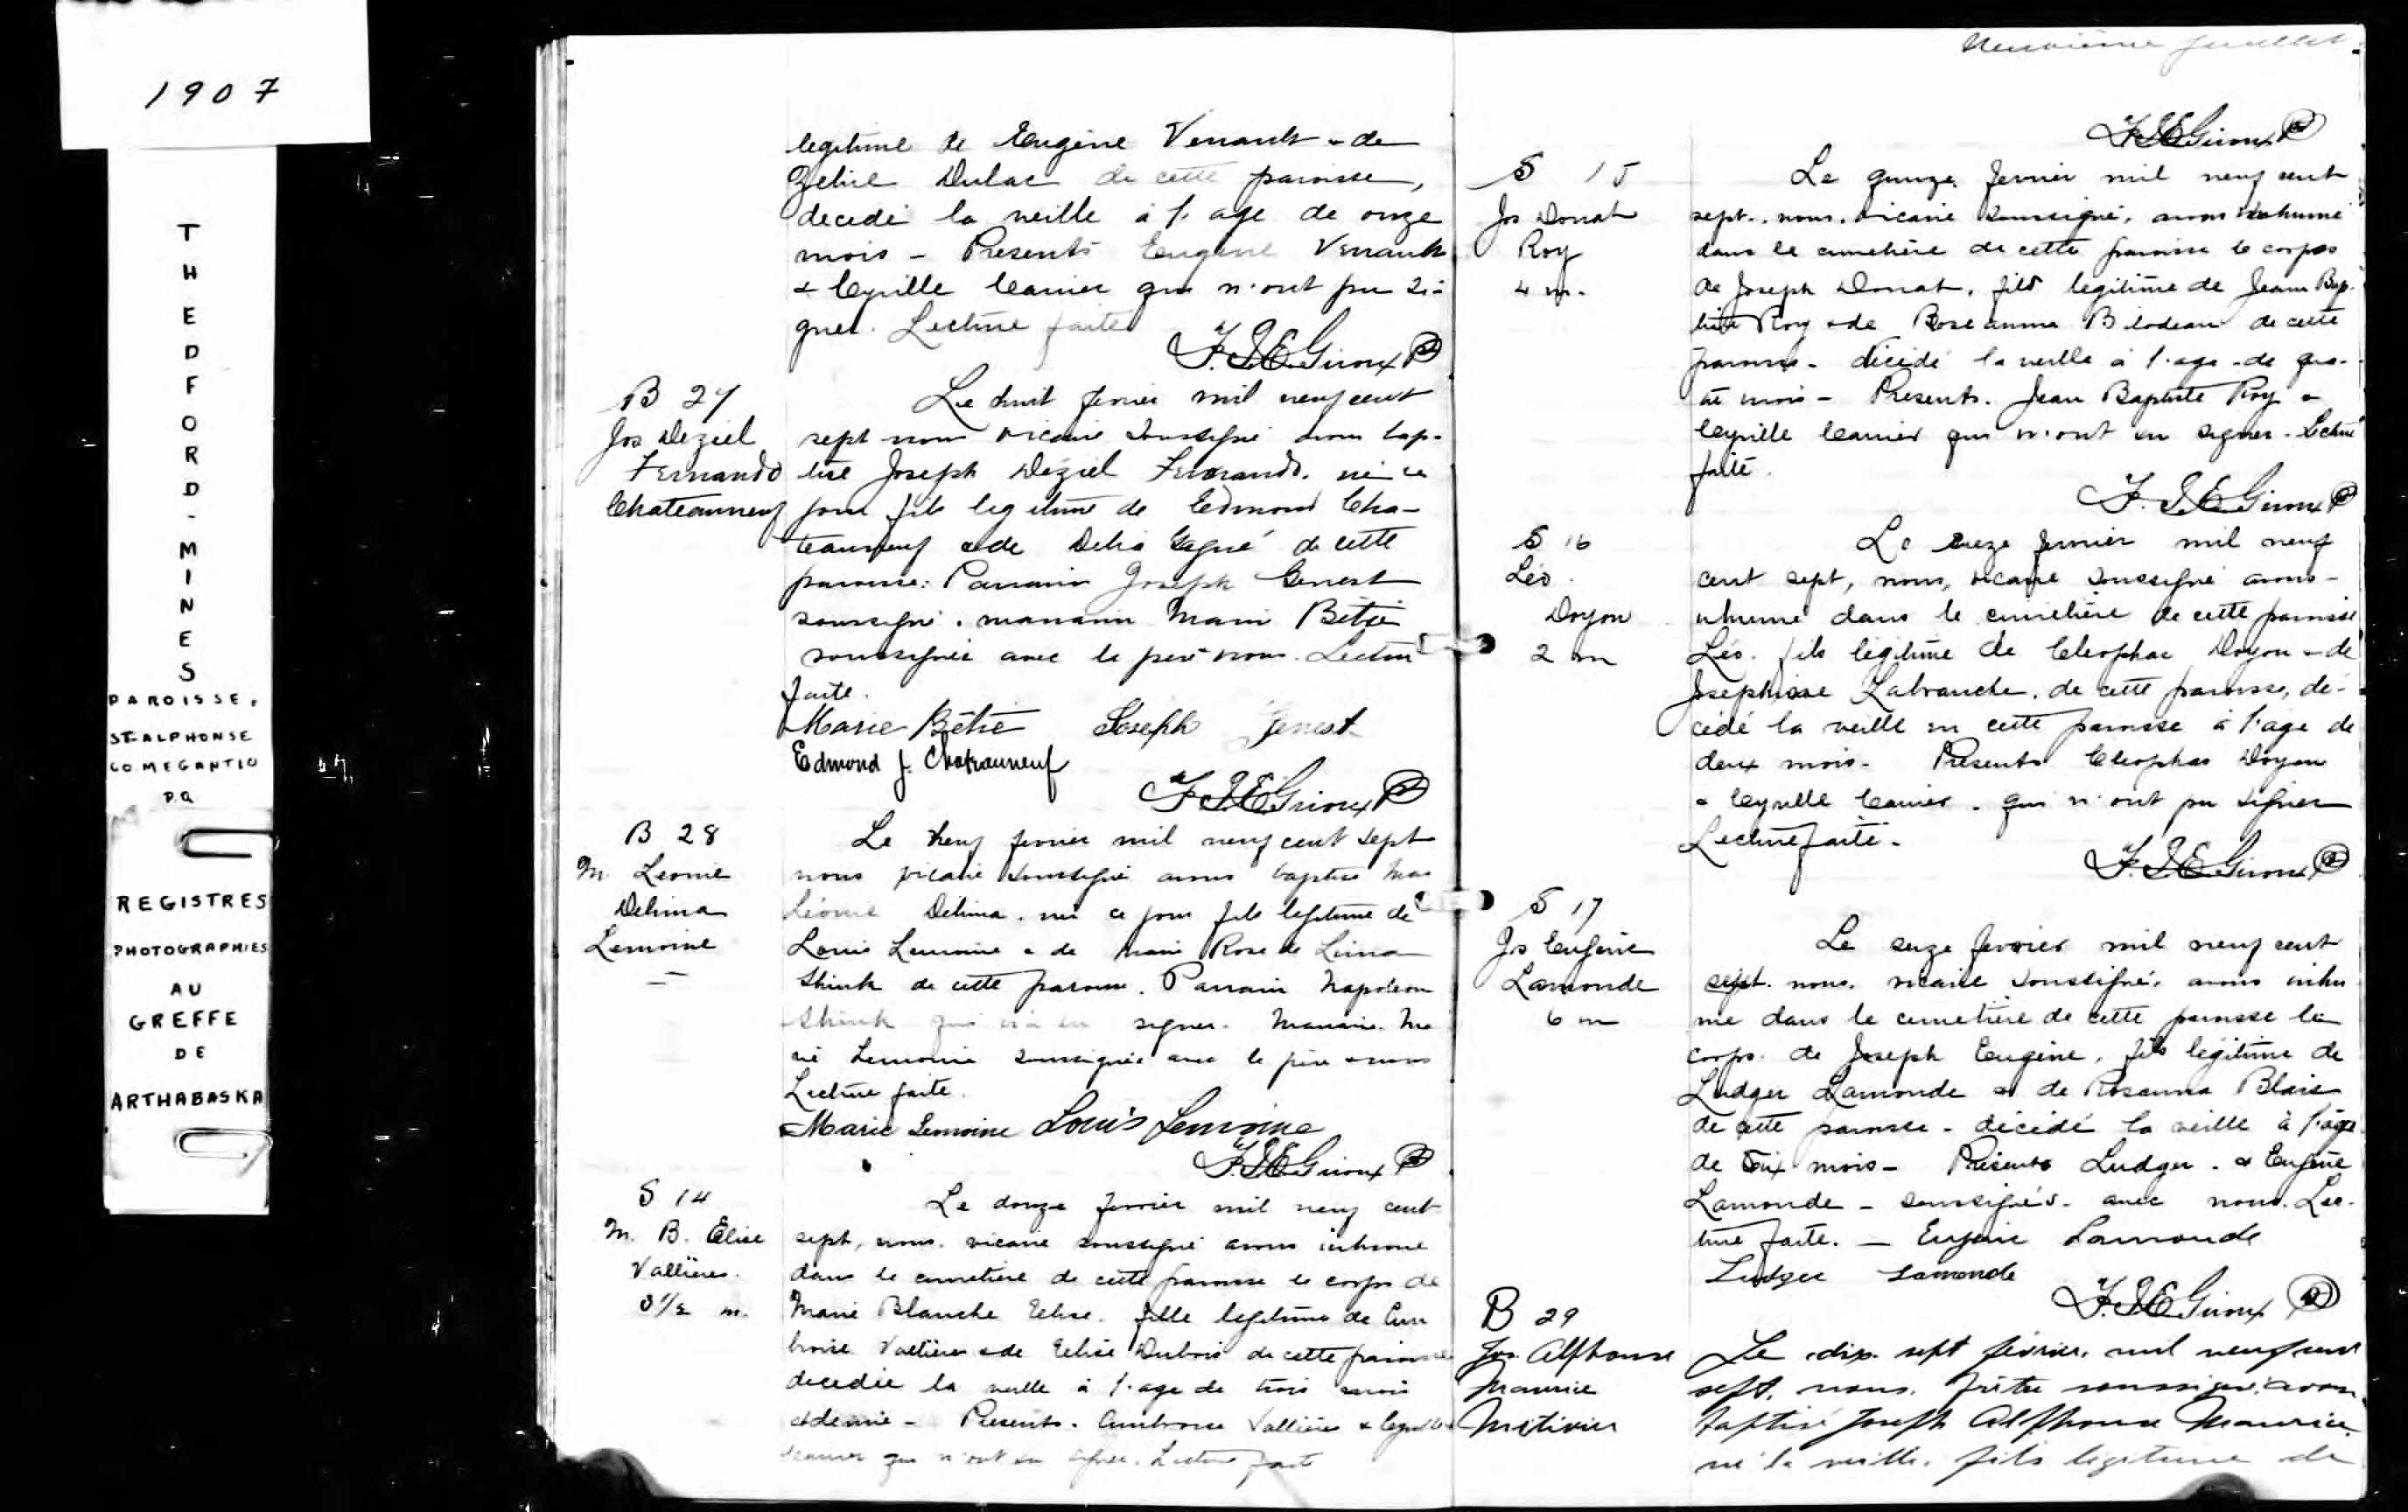 1907
THEDFORD-MINES
PAROISSE,
ST-ALPHONSE
CO. MEGANTIC
P.Q.
REGISTRES
PHOTOGRAPHIES
AU
GREFFE
DE
ARTHABASKA
legitime de Eugène Venault & de
Zelie Dulac de cette paroisse,
decedé la veille à l'age de onze
mois - Presents Eugene Venault
& Cyrille Carrier qui n'ont pu si-
gner. Lecture faite
F.J.E. Giroux Ptr
B 27
Jos Deziel
Fernando
Chateauneuf
Le huit fevrier mil neuf cent
sept nous vicaire soussigné avons bap-
tisé Joseph Déziel Fernando. né ce
jour fils legitime de Edmond Cha-
teauneuf & de Delia Gagné de cette
paroisse: Parrain Joseph Genest
soussigné. marraine Marie Bétie
soussignée avec le père & nous. Lecture
faite.
Marie Bétie Joseph Genest
Edmond J. Chateauneuf
F.J.E. Giroux Ptr
B 28
M. Leonie
Delima
Lemoine
Le neuf fevrier mil neuf cent sept
nous vicaire soussigné avons baptisé Mar
Léonie Delima. née ce jour fille legitime de
Louis Lemoine & de Marie Rose de Lima
Shink de cette paroisse. Parrain Napoleon
Shink qui n'a su signer. Marraine. Ma
rie Lemoine soussignée avec le père & nous
Lecture faite.
Marie Lemoine Louis Lemoine
F.J.E. Giroux Ptr
S 14
M. B. Elise
Vallières.
3 1/2 m.
Le douze fevrier mil neuf cent
sept, nous. vicaire soussigné avons inhumé
dans le cimetière de cette paroisse le corps de
Marie Blanche Elise. fille legitime de Am
broise Vallières & de Elise Dubois de cette paroisse
decedée la veille à l'age de trois mois
et demie - Presents. Ambroise Vallières & Cyrille
Carrier qui n'ont su signer. Lecture faite
Neuvième feuillet.
F.J.E. Giroux Ptr
S 15
Jos Donat
Roy
4 m.
Le quinze fevrier mil neuf cent
sept. nous. vicaire soussigné, avons inhumé
dans le cimetière de cette paroisse le corps
de Joseph Donat, fils legitime de Jean Bap-
tiste Roy & de Roseanna Bilodeau de cette
paroisse - décédé la veille à l'age de qua-
tre mois - Presents. Jean Baptiste Roy &
Cyrille Carrier qui n'ont su signer. Lecture
faite.
F.J.E. Giroux Ptr
S 16
Léo.
Doyon
2 m
Le seize fevrier mil neuf
cent sept, nous, vicaire soussigné avons
inhumé dans le cimetière de cette paroisse
Léo. fils légitime de Cleophas Doyon & de
Josephine Labranche, de cette paroisse, dé-
cédé la veille en cette paroisse à l'age de
deux mois. Presents Cleophas Doyon
& Cyrille Carrier. qui n'ont pu signer
Lecture faite.
F.J.E. Giroux Ptr
S 17
Js Eugène
Lamonde
6 m
Le seize fevrier mil neuf cent
sept. nous. vicaire soussigné, avons inhu
mé dans le cimetière de cette paroisse le
corps. de Joseph Eugène, fils légitime de
Ludger Lamonde & de Rosanna Blais
de cette paroisse - décédé la veille à l'age
de six mois - Présents Ludger. & Eugène
Lamonde - soussignés. avec nous. Lec-
ture faite. - Eugène Lamonde
Ludger Lamonde
F.J.E. Giroux Ptr
B 29
Jos. Alphonse
Maurice
Métivier
Le dix-sept février, mil neuf cent
sept, nous, prêtre soussigné, avons
baptisé Joseph Alphonse Maurice,
né la veille, fils légitime de